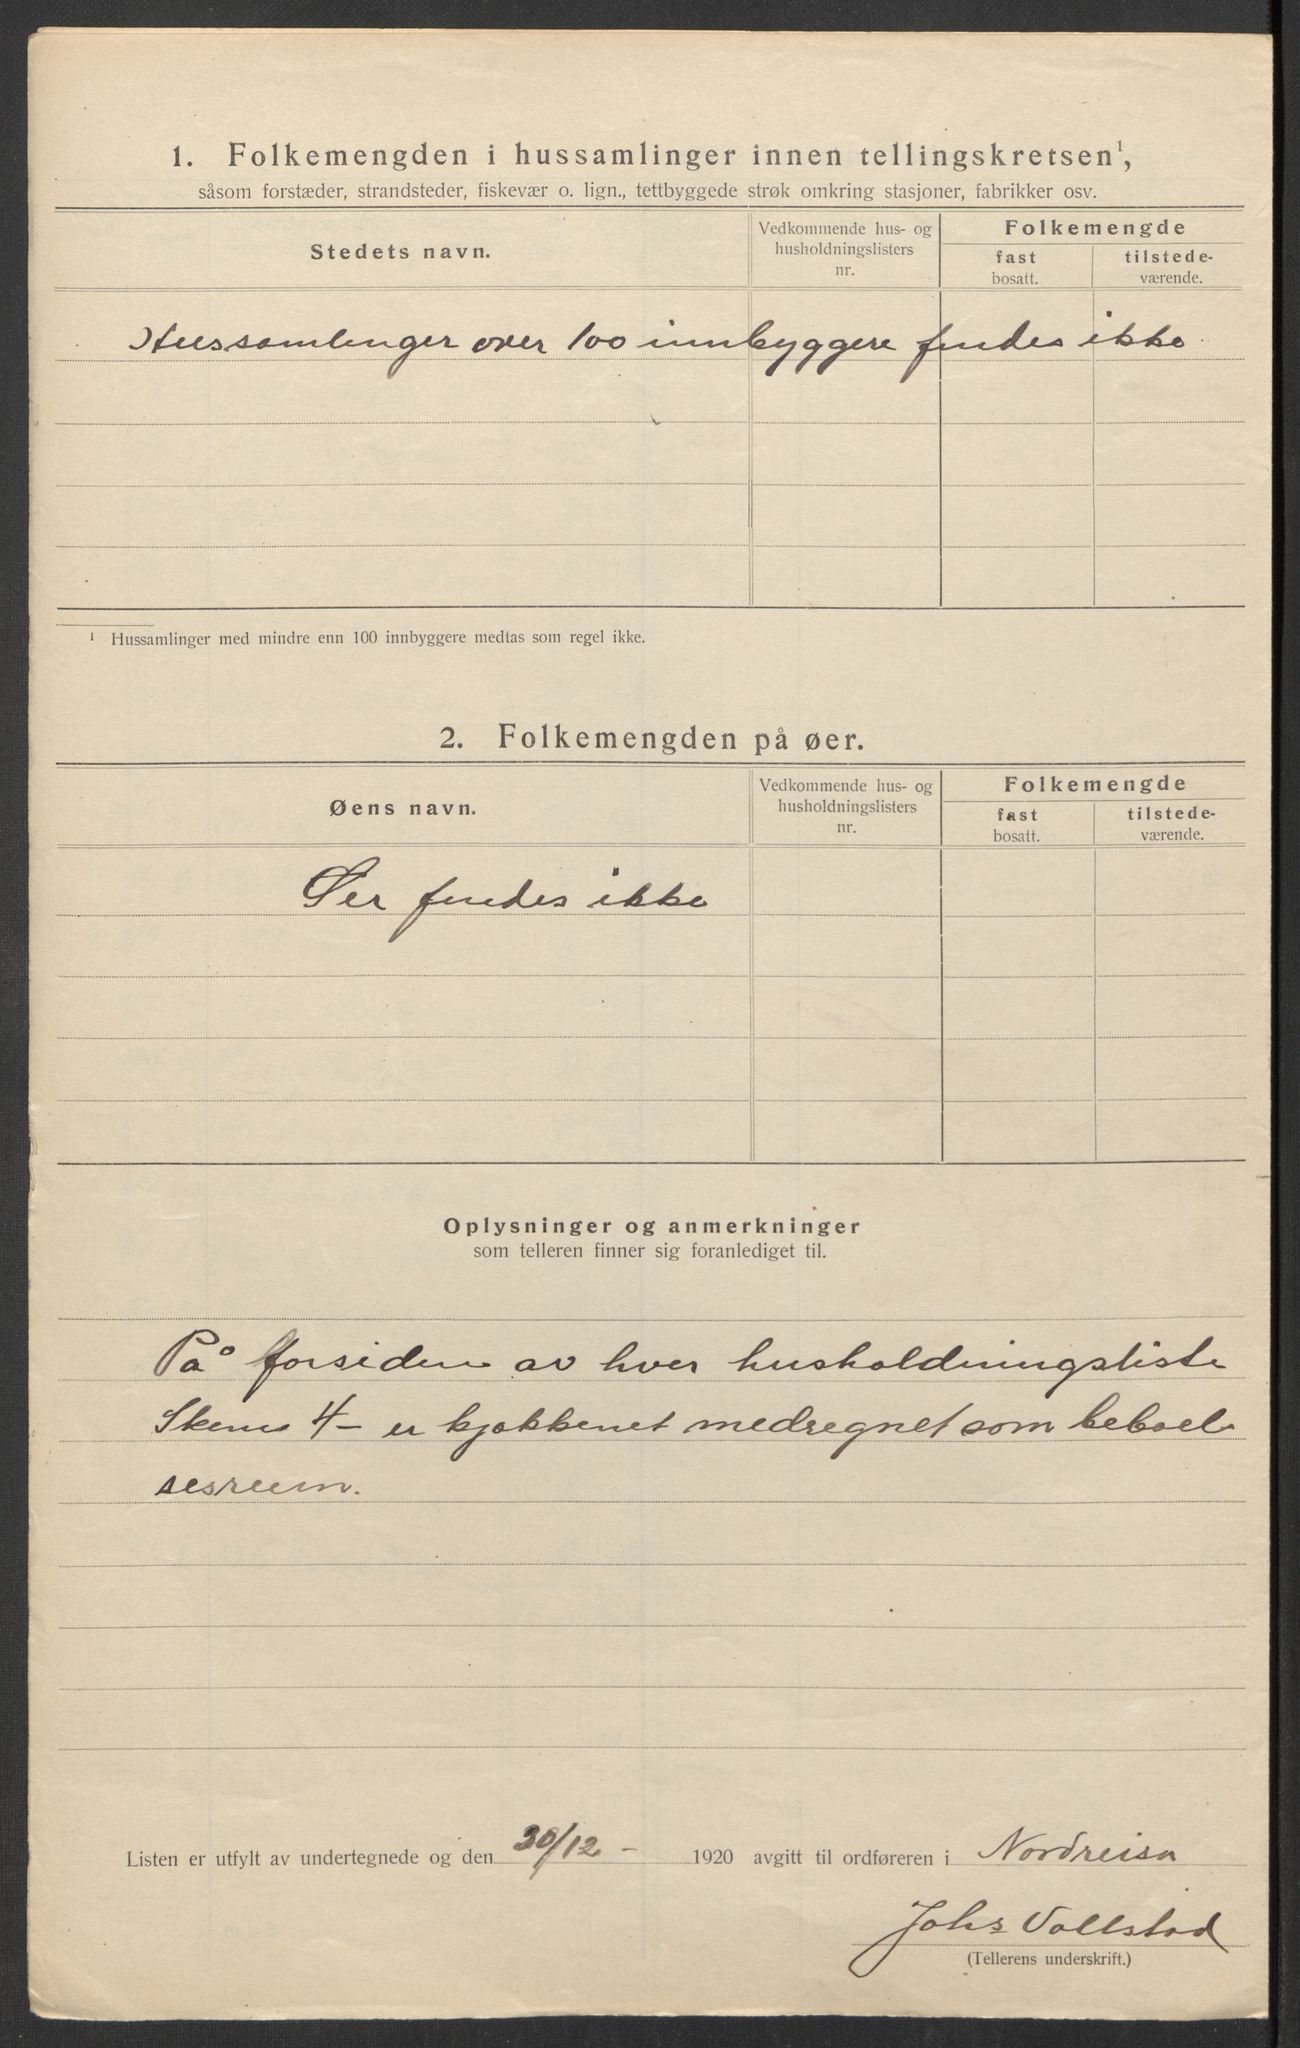 1. Folkemengden i hussamlinger innen tellingskretsen¹,
såsom forstæder, strandsteder, fiskevær o. lign., tettbyggede strøk omkring stasjoner, fabrikker osv.
Stedets navn.
Vedkommende hus- og
husholdningslisters
nr.
Folkemengde
fast
bosatt.
tilstede-
værende.
Hussamlinger over 100 innbyggere findes ikke
¹ Hussamlinger med mindre enn 100 innbyggere medtas som regel ikke.
2. Folkemengden på øer.
Øens navn.
Vedkommende hus- og
husholdningslisters
nr.
Folkemengde
fast
bosatt.
tilstede-
værende.
Øer findes ikke
Oplysninger og anmerkninger
som telleren finner sig foranlediget til.
På forsiden av hver husholdningsliste
Skema 4 – er kjøkkenet medregnet som beboel
sesrum.
Listen er utfylt av undertegnede og den 30/12 – 1920 avgitt til ordføreren i Nordreisa
Johs Vollstad
(Tellerens underskrift.)